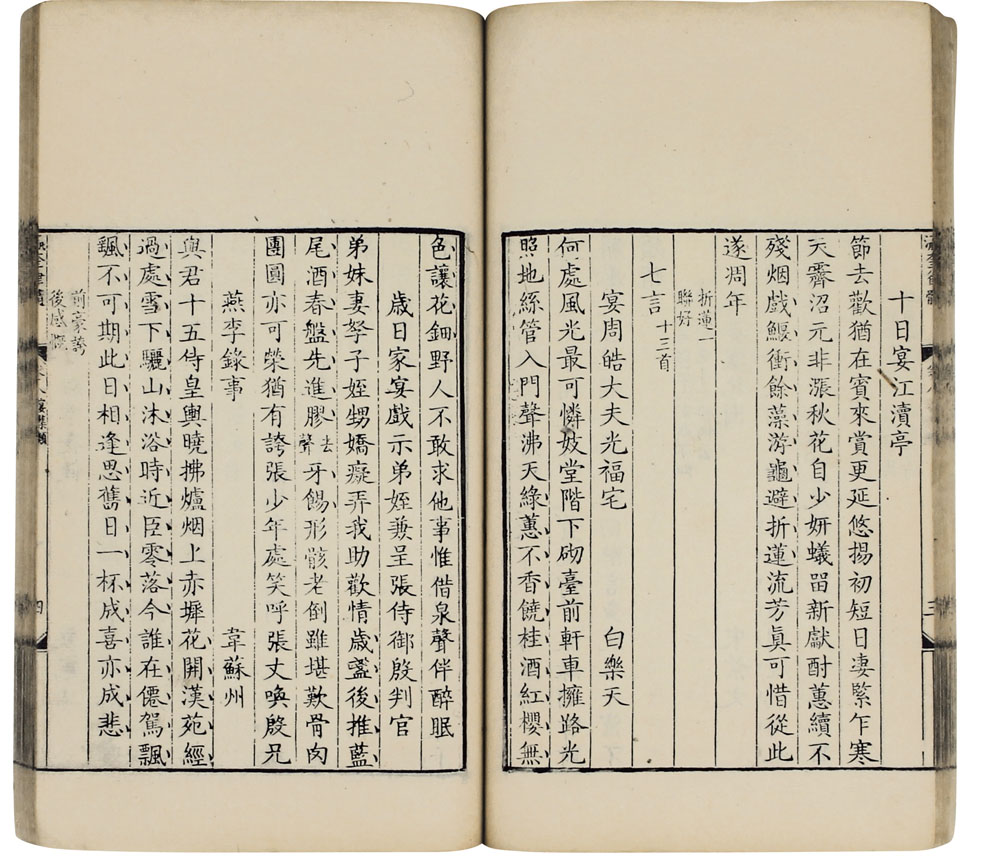 十日宴江瀆亭
節去歡猶在賓來賞更延悠揚初短日凄緊乍寒
天霽沼元非漲秋花自少妍蟻留新獻酎蕙續不
殘烟戲鰋衝餘藻游龜避折蓮流芳眞可惜從此
遂凋年
折蓮一
聯好
七言 十三首
宴周皓大夫光福宅 白樂天
何處風光最可憐妓堂階下砌臺前軒車擁路光
照地絲管入門聲沸天綠蕙不香饒桂酒紅櫻無
色讓花鈿野人不敢求他事惟借泉聲伴醉眠
歲日家宴戲示弟姪兼呈張侍御殷判官
弟妹妻孥子姪甥嬌癡弄我助歡情歲盞後推藍
尾酒春盤先進膠去聲牙餳形骸老倒雖堪歎骨肉
團圓亦可榮猶有誇張少年處笑呼張丈喚殷兄
燕李錄事 韋蘇州
與君十五侍皇輿曉拂爐烟上赤墀花開漢苑經
過處雪下驪山沐浴時近臣零落今誰在僊駕飄
飄不可期此日相逢思舊日一杯成喜亦成悲
前豪誇
後感慨